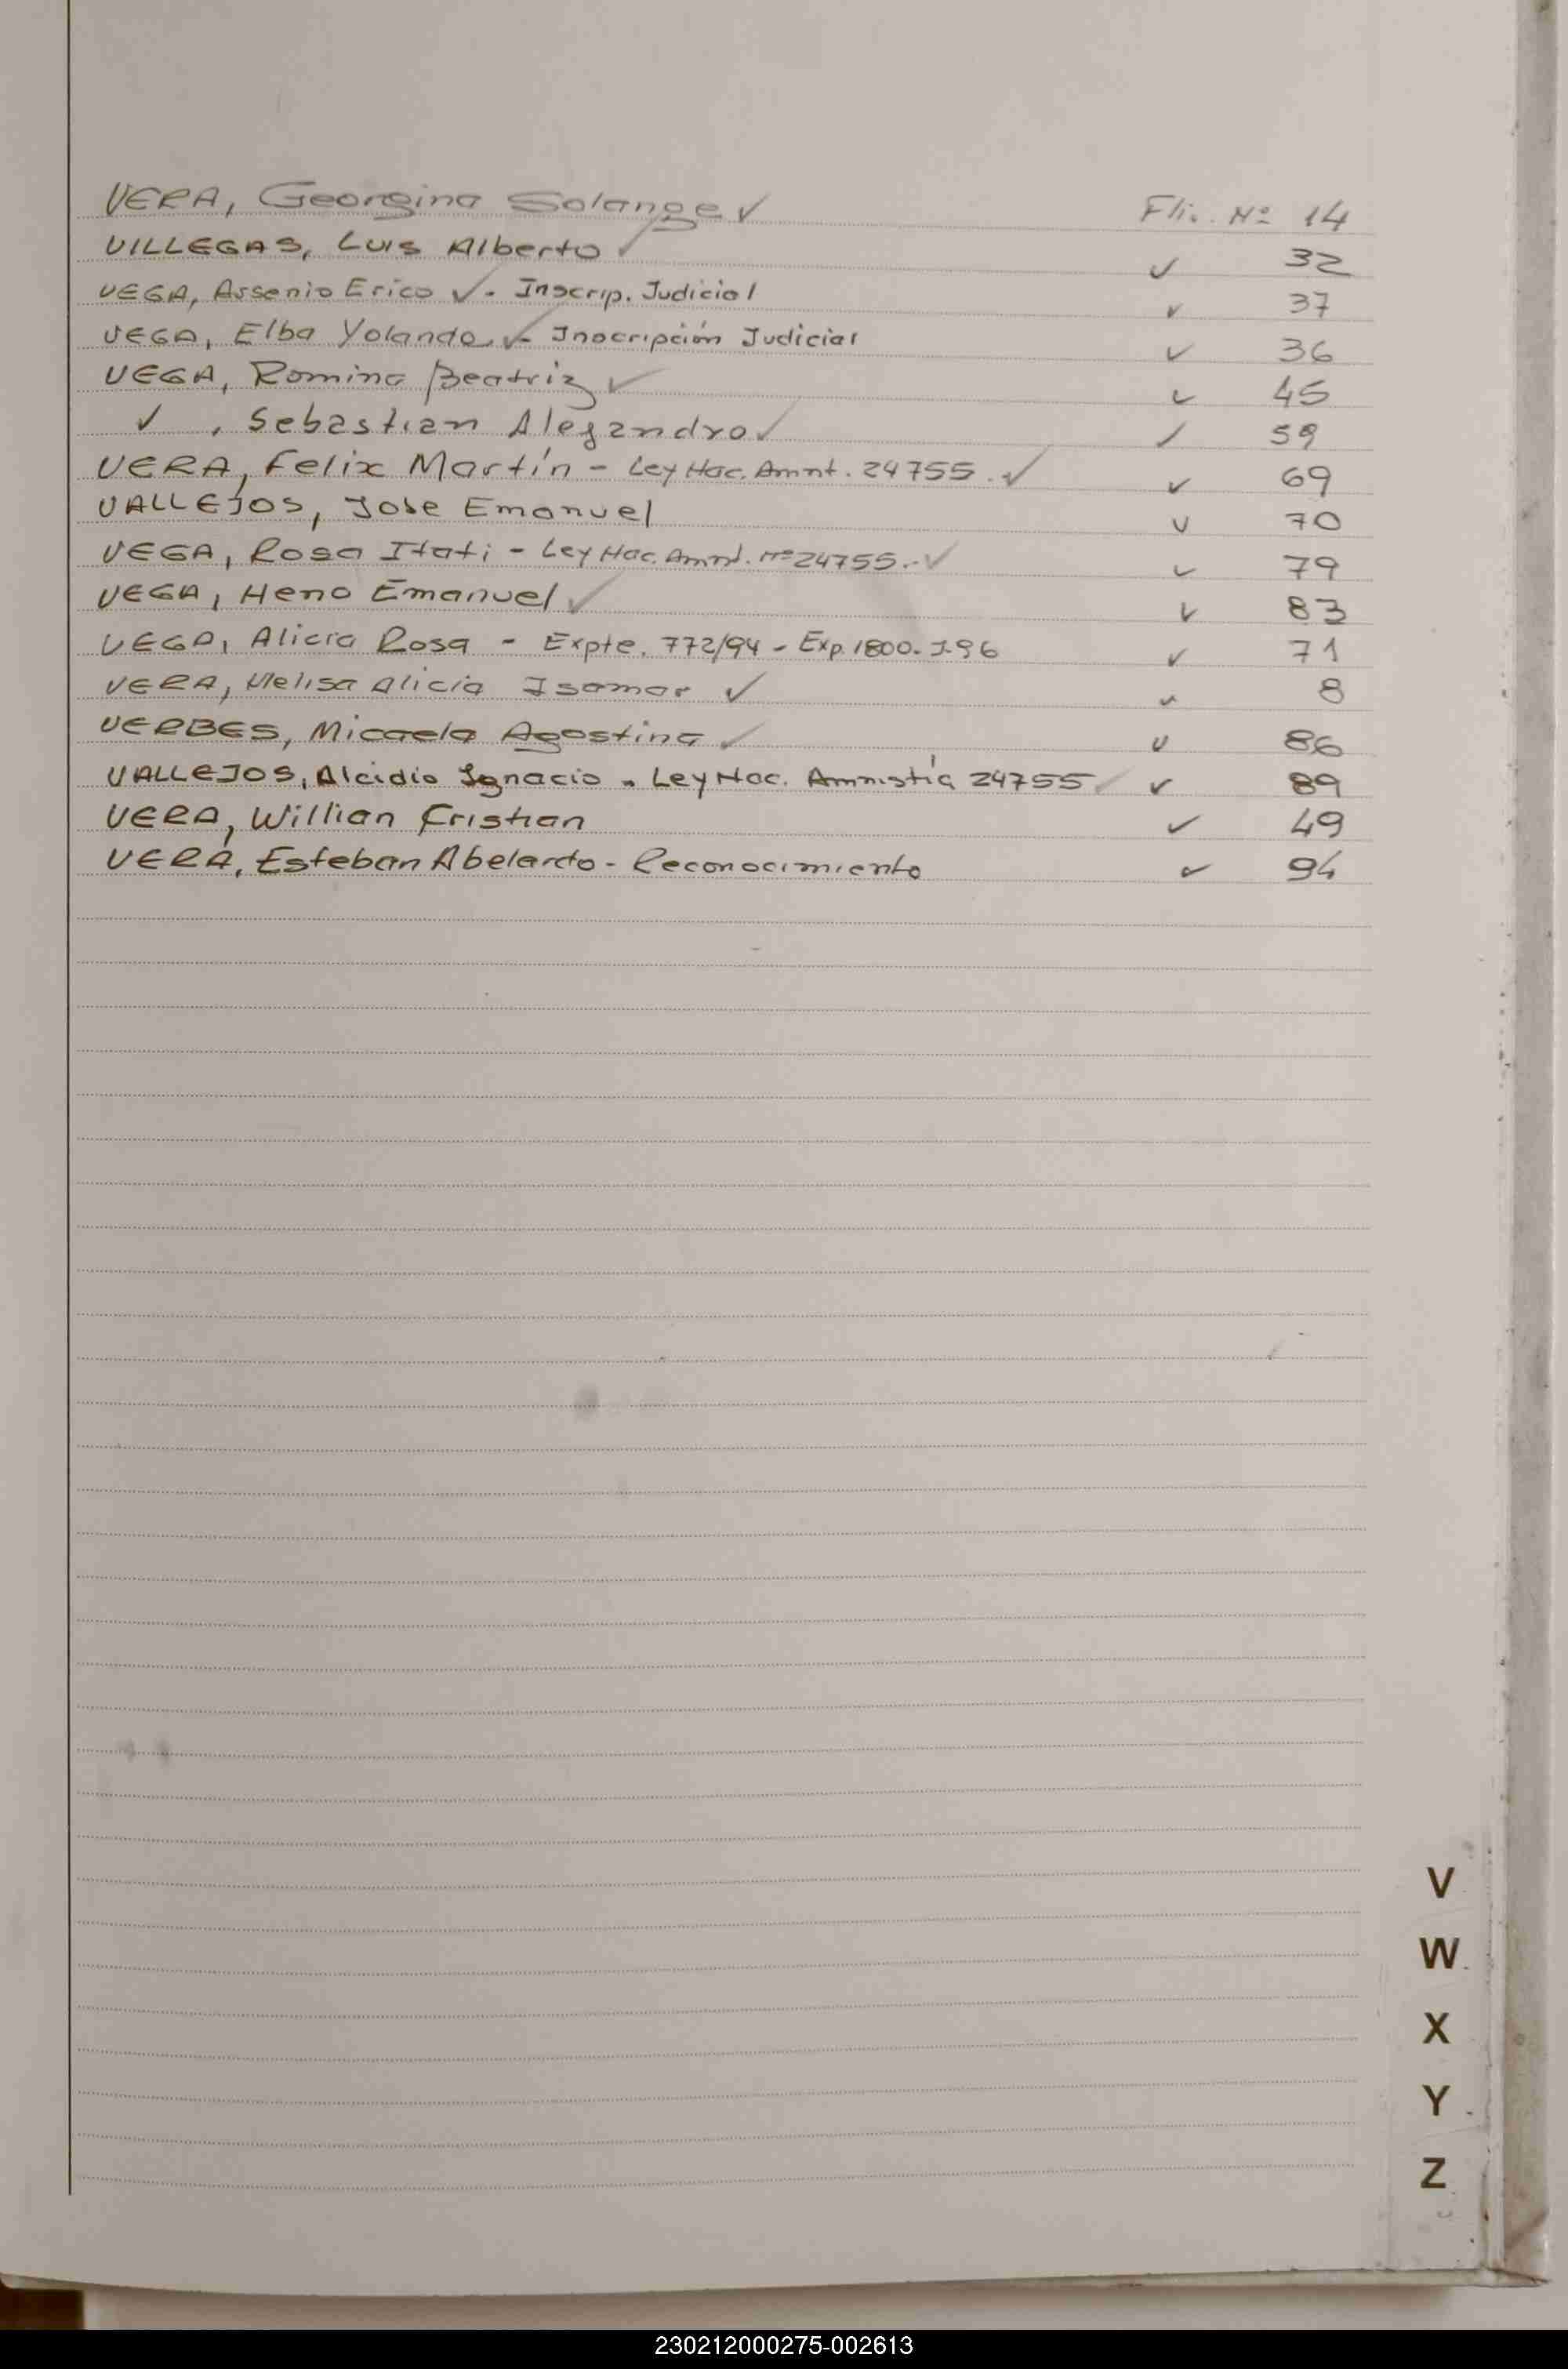 VERA, Georgina Solange ✓ Fli. Nº 14
VILLEGAS, Luis Alberto ✓ ✓ 32
VEGA, Assenio Erico ✓ - Inscrip. Judicial ✓ 37
VEGA, Elba Yolanda ✓ - Inscripción Judicial ✓ 36
VEGA, Romina Beatriz ✓ ✓ 45
✓ , Sebastian Alejandro ✓ ✓ 59
VERA, Felix Martín - Ley Nac. Amnt. 24755. ✓ ✓ 69
VALLEJOS, Jose Emanuel ✓ 70
VEGA, Rosa Itati - Ley Nac. Amnt. Nº 24755.- ✓ ✓ 79
VEGA, Heno Emanuel ✓ ✓ 83
VEGA, Alicia Rosa - Expte. 772/94 - Exp. 1800. ✓ 71
VERA, Melisa Alicia Isamar ✓ ✓ 8
VERBES, Micaela Agostina ✓ ✓ 86
VALLEJOS, Alcidio Ignacio - Ley Nac. Amnistía 24755 ✓ ✓ 89
VERA, Willian Cristian ✓ 49
VERA, Esteban Abelardo - Reconocimiento ✓ 94
V
W
X
Y
Z
230212000275-002613